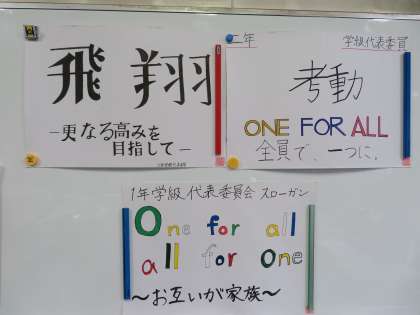 飛翔
－更なる高みを
目指して－
二年
学級代表委員
考動
ONE FOR ALL
全員で、一つに.
1年学級代表委員会 スローガン
One for all
all for one
～お互いが家族～